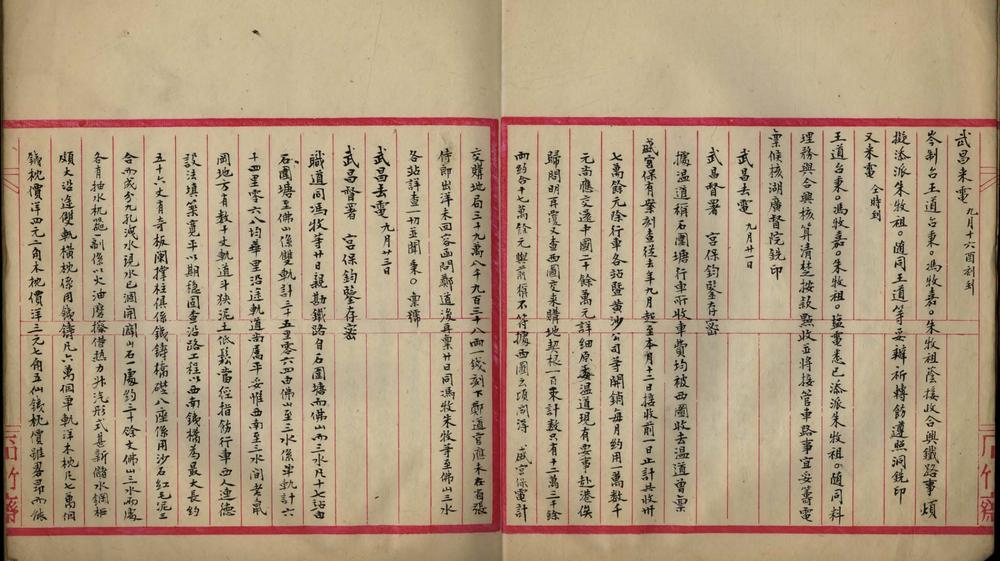 武昌来電 九月十六酉刻到
岑制台王道台秉。馮牧嘉。朱牧祖蔭接收合興鐵路事煩
擬添派朱牧祖。随同王道等妥辦祈轉飭遵照洞銑印
又来電 仝時到
王道台秉。馮牧嘉。朱牧祖。塩電悉已添派朱牧祖。随同料
理務與合興核算清楚按款點收並將接管車路事宜妥籌電
稟候核湖廣督院銑印
武昌去電 九月廿一日
武昌督署 宮保鈞鑒存密
據温道稱石圍塘行車所收車費均被西圖收去温道曾稟
盛宮保有案刻查従去年九月起至本月十二日接收前一日止計共收卅
七萬餘元除行車各站暨黄沙公司等開銷每月約用一萬数千
元尚應交還中國二十餘萬元詳細原委温道現有要事赴港俟
歸問明再覆又查西圖交来購地契紙一百束計数只有十二萬三千餘
兩約合十七萬餘元與前稟不符據西圖云頃問得 盛宮保電計
交購地局三十九萬八千九百三十八兩一錢刻下鄭道官應未在省張
侍郎出洋未回容函問鄭道後再稟廿日同馮牧朱牧等至佛山三水
各站詳查一切並聞秉。稟號
武昌去電 九月廿三日
武昌督署 宮保鈞鑒存密
職道同馮牧等廿日親勘鐵路自石圍塘而佛山而三水凡十七站由
石圍塘至佛山係雙軌計三十五里零六四由佛山至三水係单軌計六
十四里零六八均華里沿途軌道尚属平妥惟西南至三水間老鼠
岡地方有数十丈軌道斗狹泥土低鬆當徑指飭行車西人連德
設法填築寬平以期穩固查沿路工程以西南鐵橋為最大長約
五十七丈有奇板闌撐柱俱係鐵鑄橋磴八座係用沙石紅毛泥三
合而成分九孔洩水現水已涸開闢山石一處約三十餘丈佛山三水兩處
各有抽水机噐副係以火油磨撥借熱力升汽形式甚新儲水鋼櫃
頗大沿途雙軌横枕係用鐵鑄凡六萬個单軌洋木枕凡七萬個
鐵枕價洋四元二角木枕價洋三元七角五仙鐵枕價雖畧昂而俟